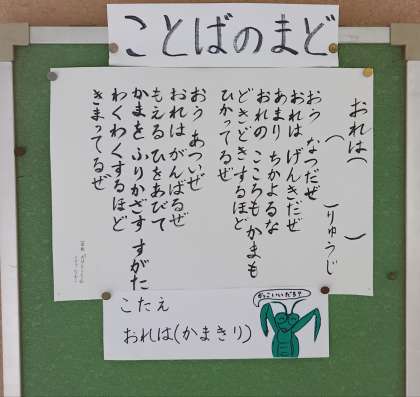 ことばのまど
おれは(　　　)
(　　　)りゅうじ
おう　なつだぜ
おれは　げんきだぜ
あまり　ちかよるな
おれの　こころも　かまも
どきどきするほど
ひかってるぜ
おう　あついぜ
おれは　がんばるぜ
もえる　ひをあびて
かまを　ふりかざす　すがた
わくわくするほど
きまってるぜ
こたえ
おれは(かまきり)
かっこいいだろ?